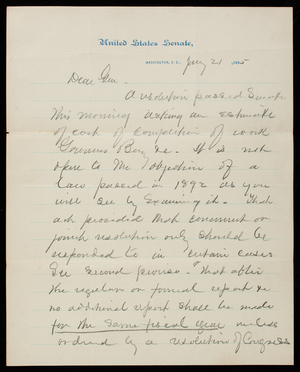 United States Senate,
WASHINGTON, D.C., Jany 21 1895
Dear Gen.
A resolution passed Senate
this morning asking an estimate
of cost of completion of work
Bay &c. It is not
open to the objection of a
law passed in 1892 as you
will see by examining it. That
act provided that concurrent or
joint resolution only should be
responded to in certain cases
See second proviso. "That after
the regular or formal report &c
no additional report shall be made
for the same fiscal year unless
ordered by a resolution of Congress